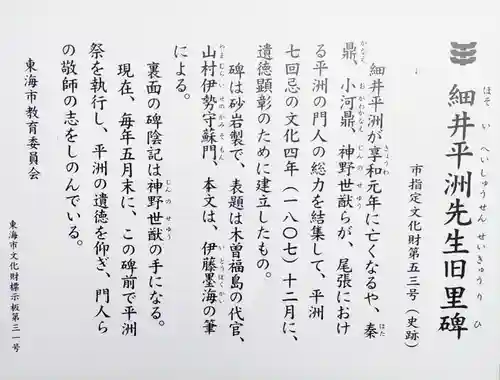 細井平洲先生旧里碑
ほそいへいしゅうせんせいきゅうりひ
市指定文化財第五三号（史跡）
細井平洲が享和元年に亡くなるや、秦
鼎、小河鼎、神野世猷らが、尾張におけ
る平洲の門人の総力を結集して、平洲
七回忌の文化四年（一八〇七）十二月に、
遺徳顕彰のために建立したもの。
碑は砂岩製で、表題は木曽福島の代官、
山村伊勢守蘇門、本文は、伊藤墨海の筆
による。
裏面の碑陰記は神野世猷の手になる。
現在、毎年五月末に、この碑前で平洲
祭を執行し、平洲の遺徳を仰ぎ、門人ら
の敬師の志をしのんでいる。
東海市教育委員会
東海市文化財標示板第三一号